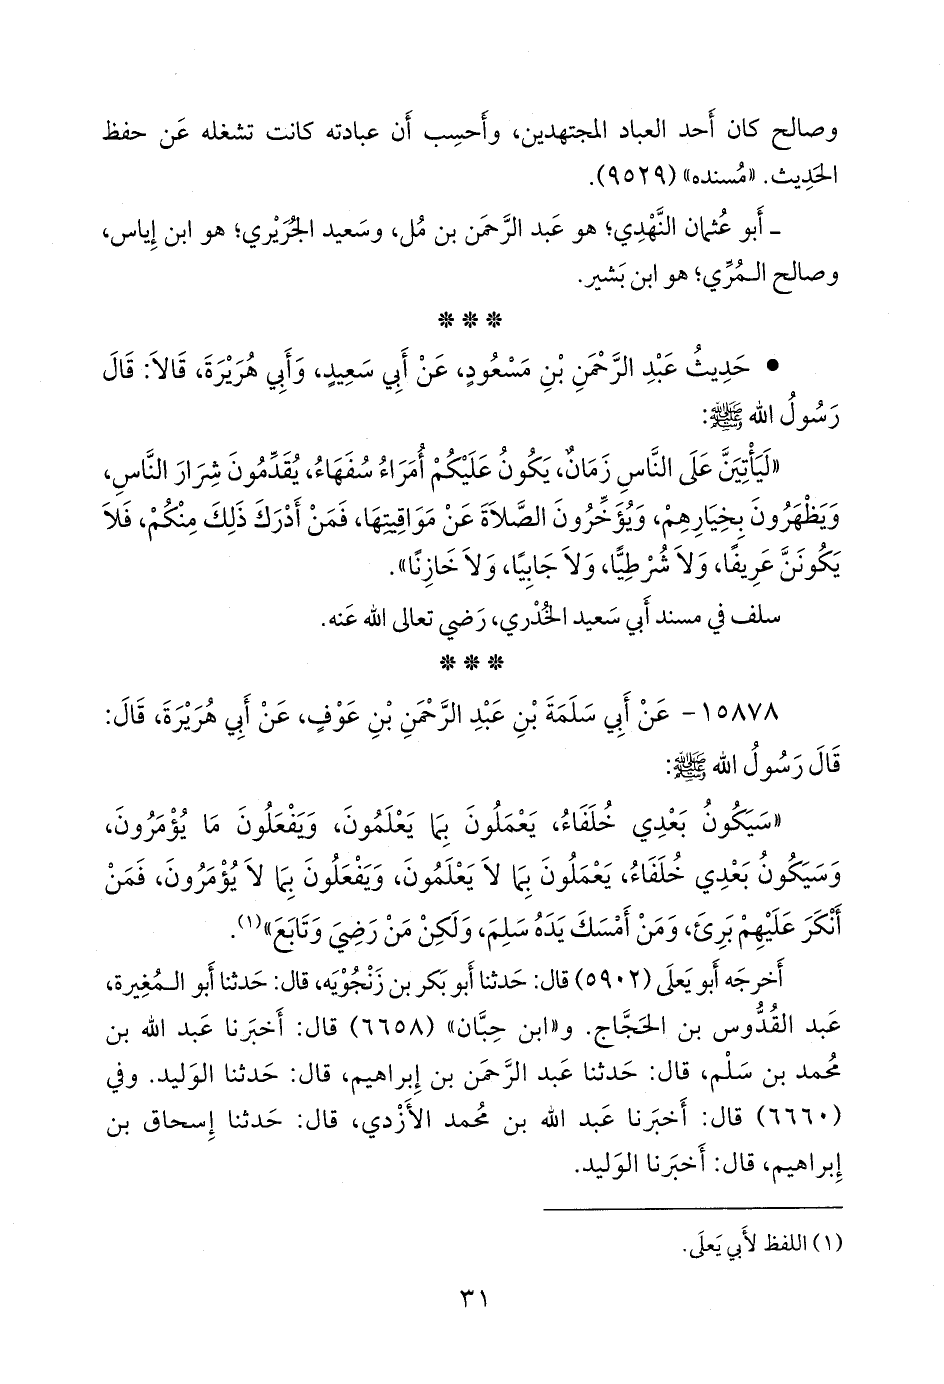 وصالح كان أَحد العباد المجتهدين، وأَحسِب أَن عبادته كانت تشغله عَن حفظ
الحَدِيث. «مُسنده» (٩٥٢٩).
ـ أَبو عُثمان النَّهْدِي؛ هو عَبد الرَّحمَن بن مُل، وسَعيد الجُرَيْري؛ هو ابن إِياس،
وصالح الـمُرِّي؛ هو ابن بَشير.
* * *
• حَدِيثُ عَبْدِ الرَّحْمَنِ بْنِ مَسْعُودٍ، عَنْ أَبِي سَعِيدٍ، وَأَبِي هُرَيْرَةَ، قَالاَ: قَالَ
رَسُولُ الله ﷺ:
«لَيَأْتِيَنَّ عَلَى النَّاسِ زَمَانٌ، يَكُونُ عَلَيْكُمْ أُمَرَاءُ سُفَهَاءُ، يُقَدِّمُونَ شِرَارَ النَّاسِ،
وَيَظْهَرُونَ بِخِيَارِهِمْ، وَيُؤَخِّرُونَ الصَّلاَةَ عَنْ مَوَاقِيتِهَا، فَمَنْ أَدْرَكَ ذَلِكَ مِنْكُمْ، فَلاَ
يَكُونَنَّ عَرِيفًا، وَلاَ شُرْطِيًّا، وَلاَ جَابِيًا، وَلاَ خَازِنًا».
سلف في مسند أَبي سَعيد الخُدْري، رَضي تعالى الله عَنه.
* * *
١٥٨٧٨- عَنْ أَبِي سَلَمَةَ بْنِ عَبْدِ الرَّحْمَنِ بْنِ عَوْفٍ، عَنْ أَبِي هُرَيْرَةَ، قَالَ:
قَالَ رَسُولُ الله ﷺ:
«سَيَكُونُ بَعْدِي خُلَفَاءُ، يَعْمَلُونَ بِمَا يَعْلَمُونَ، وَيَفْعَلُونَ مَا يُؤْمَرُونَ،
وَسَيَكُونُ بَعْدِي خُلَفَاءُ، يَعْمَلُونَ بِمَا لاَ يَعْلَمُونَ، وَيَفْعَلُونَ بِمَا لاَ يُؤْمَرُونَ، فَمَنْ
أَنْكَرَ عَلَيْهِمْ بَرِئَ، وَمَنْ أَمْسَكَ يَدَهُ سَلِمَ، وَلَكِنْ مَنْ رَضِيَ وَتَابَعَ»(١).
أَخرجَه أَبو يَعلَى (٥٩٠٢) قال: حَدثنا أَبو بَكر بن زَنْجُوْيَه، قال: حَدثنا أَبو الـمُغِيرة،
عَبد القُدُّوس بن الحَجَّاج. و«ابن حِبَّان» (٦٦٥٨) قال: أَخبَرنا عَبد الله بن
مُحمد بن سَلْم، قال: حَدثنا عَبد الرَّحمَن بن إِبراهيم، قال: حَدثنا الوَليد. وفي
(٦٦٦٠) قال: أَخبَرنا عَبد الله بن مُحمد الأَزْدي، قال: حَدثنا إِسحاق بن
إِبراهيم، قال: أَخبَرنا الوَليد.
(١) اللفظ لأَبي يَعلَى.
٣١